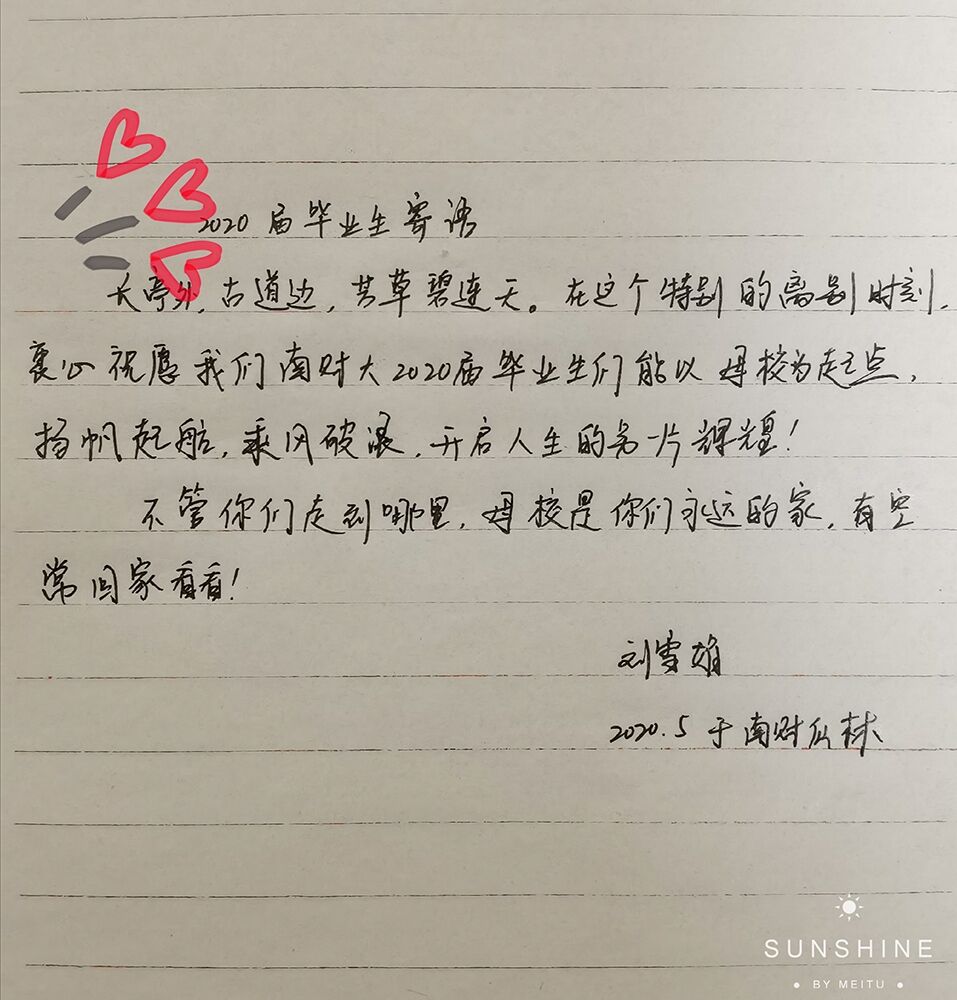 2020届毕业生寄语
长亭外,古道边,芳草碧连天。在这个特别的离别时刻,
衷心祝愿我们南财大2020届毕业生们能以母校为起点,
扬帆起航,乘风破浪,开启人生的另一片辉煌!
不管你们走到哪里,母校是你们永远的家,有空
常回家看看!
刘雪雄
2020.5于南财仙林
SUNSHINE
• BY MEITU •